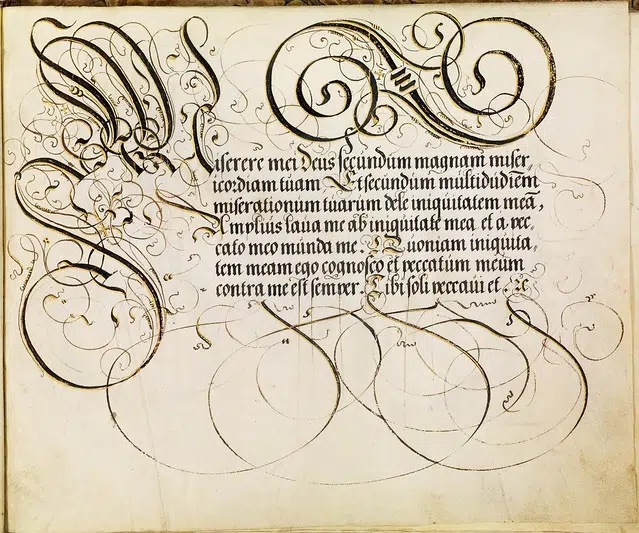 Miserere mei Deus secundum magnam miser,
icordiam tuam Et secundum multidudiēm
miserationum tuarum dele iniquitatem meā,
Amplius laua me ab iniquitate mea et a pec,
cato meo munda me. Quoniam iniquita,
tem meam ego cognosco et peccatum meum
contra me est semper. Tibi soli peccaui et